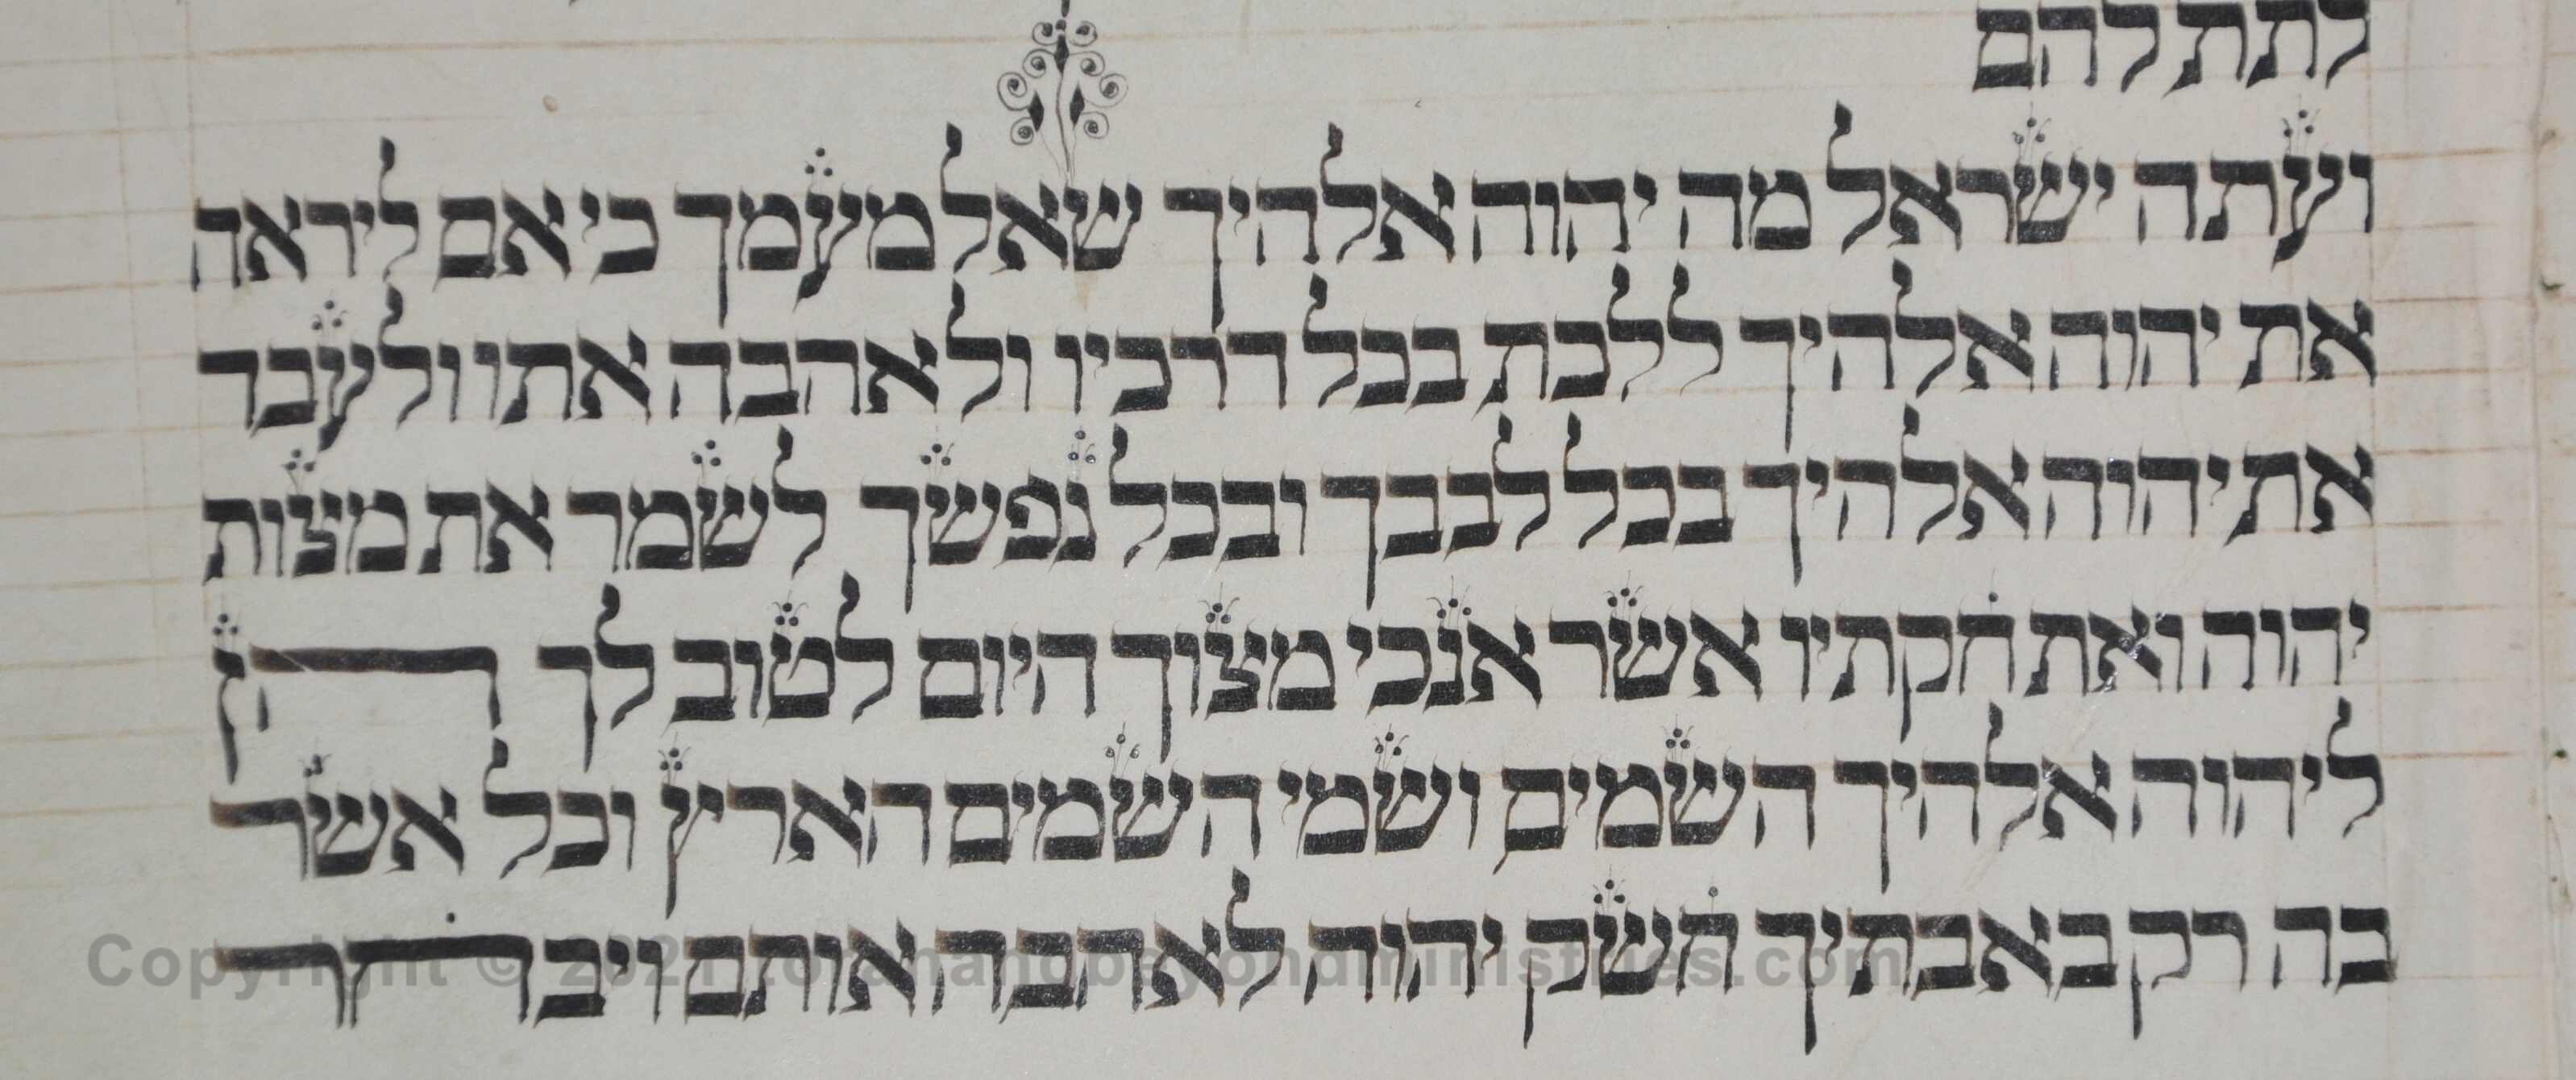 לתת להם
ועתה ישראל מה יהוה אלהיך שאל מעמך כי אם ליראה
את יהוה אלהיך ללכת בכל דרכיו ולאהבה אתו ולעבד
את יהוה אלהיך בכל לבבך ובכל נפשך לשמר את מצות
יהוה ואת חקתיו אשר אנכי מצוך היום לטוב לך הן
ליהוה אלהיך השמים ושמי השמים הארץ וכל אשר
בה רק באבתיך חשק יהוה לאהבה אותם ויבחר
Copyright © 2021 torahandbeyondministries.com